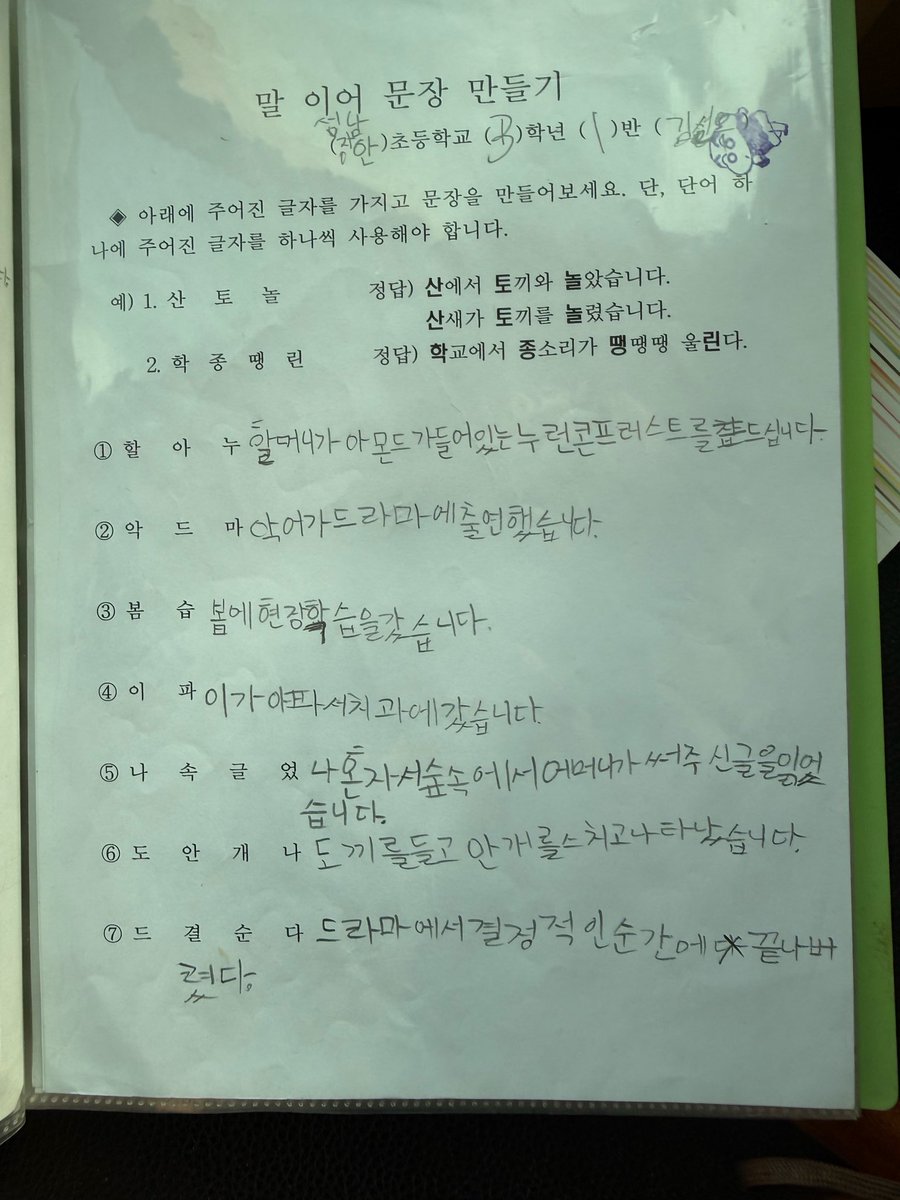 말 이어 문장 만들기
성남
(장안)초등학교 (3)학년 (1)반 (김
◈ 아래에 주어진 글자를 가지고 문장을 만들어보세요. 단, 단어 하
나에 주어진 글자를 하나씩 사용해야 합니다.
예) 1. 산 토 놀 정답) 산에서 토끼와 놀았습니다.
산새가 토끼를 놀렸습니다.
2. 학 종 땡 린 정답) 학교에서 종소리가 땡땡땡 울린다.
① 할 아 누 할머니가 아몬드가들어있는누런콘프러스트를 드십니다.
② 악 드 마 악어가드라마에출연했습니다.
③ 봄 습 봄에현장학습을갔습니다.
④ 이 파 이가아파서치과에갔습니다.
⑤ 나 속 글 었 나혼자서숲속에서어머니가써주신글을읽었
습니다.
⑥ 도 안 개 나 도끼를들고안개를스치고나타났습니다.
⑦ 드 결 순 다 드라마에서결정적인순간에 끝나버
렸다.